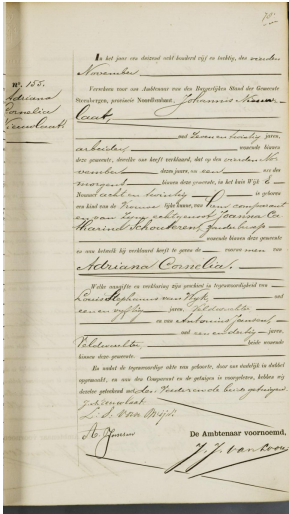 70.
In het jaar een duizend acht honderd vijf en tachtig, den vierden
November
Nº. 155.
Adriana
Cornelia
Nieuwlaat
Verscheen voor ons Ambtenaar van den Burgerlijken Stand der Gemeente
Steenbergen, provincie Noordbrabant, Johannis Nieuw-
laat,
oud zeven en twintig jaren,
arbeider wonende binnen
deze gemeente, dewelke ons heeft verklaard, dat op den vierden No-
vember dezes jaars, des een ure des
morgens binnen deze gemeente, in het huis Wijk E
Nommer acht en twintig is geboren
een kind van de Vrouwelijke kunne, van hem comparant
en van zijne echtgenoot Joanna Ca-
tharina Schouteren, zonder beroep
wonende binnen deze gemeente
en aan hetwelk hij verklaard heeft te geven de voornamen van
Adriana Cornelia.
Welke aangifte en verklaring zijn geschied in tegenwoordigheid van
Louis Stephanus van Wijk oud
een en vijftig jaren, Veldwachter
en van Antonius Jansens
oud een en dertig jaren,
Veldwachter beide wonende
binnen deze gemeente.
En nadat de tegenwoordige akte van geboorte, daar van dadelijk in dubbel
opgemaakt, en aan den Comparant en de getuigen is voorgelezen, hebben wij
dezelve geteekend met den Vader en de beide getuigen
J. Nieuwlaat
L. S. van Wijk
A. Jansens
De Ambtenaar voornoemd,
J. J. van Loon